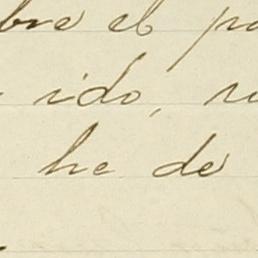 bre el
ido,
he de